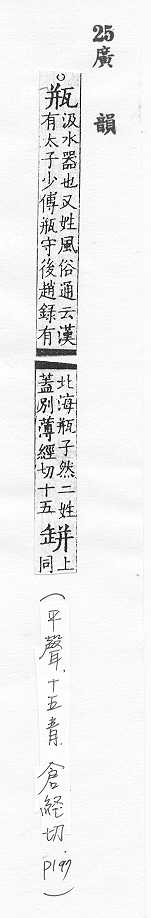 25 廣韻
○瓶
汲水器也又姓風俗通云漢
有太子少傅瓶守後趙錄有
北海瓶子然二姓
蓋別薄經切十五
缾
上
同
(平聲.十五青.倉経切.P197)